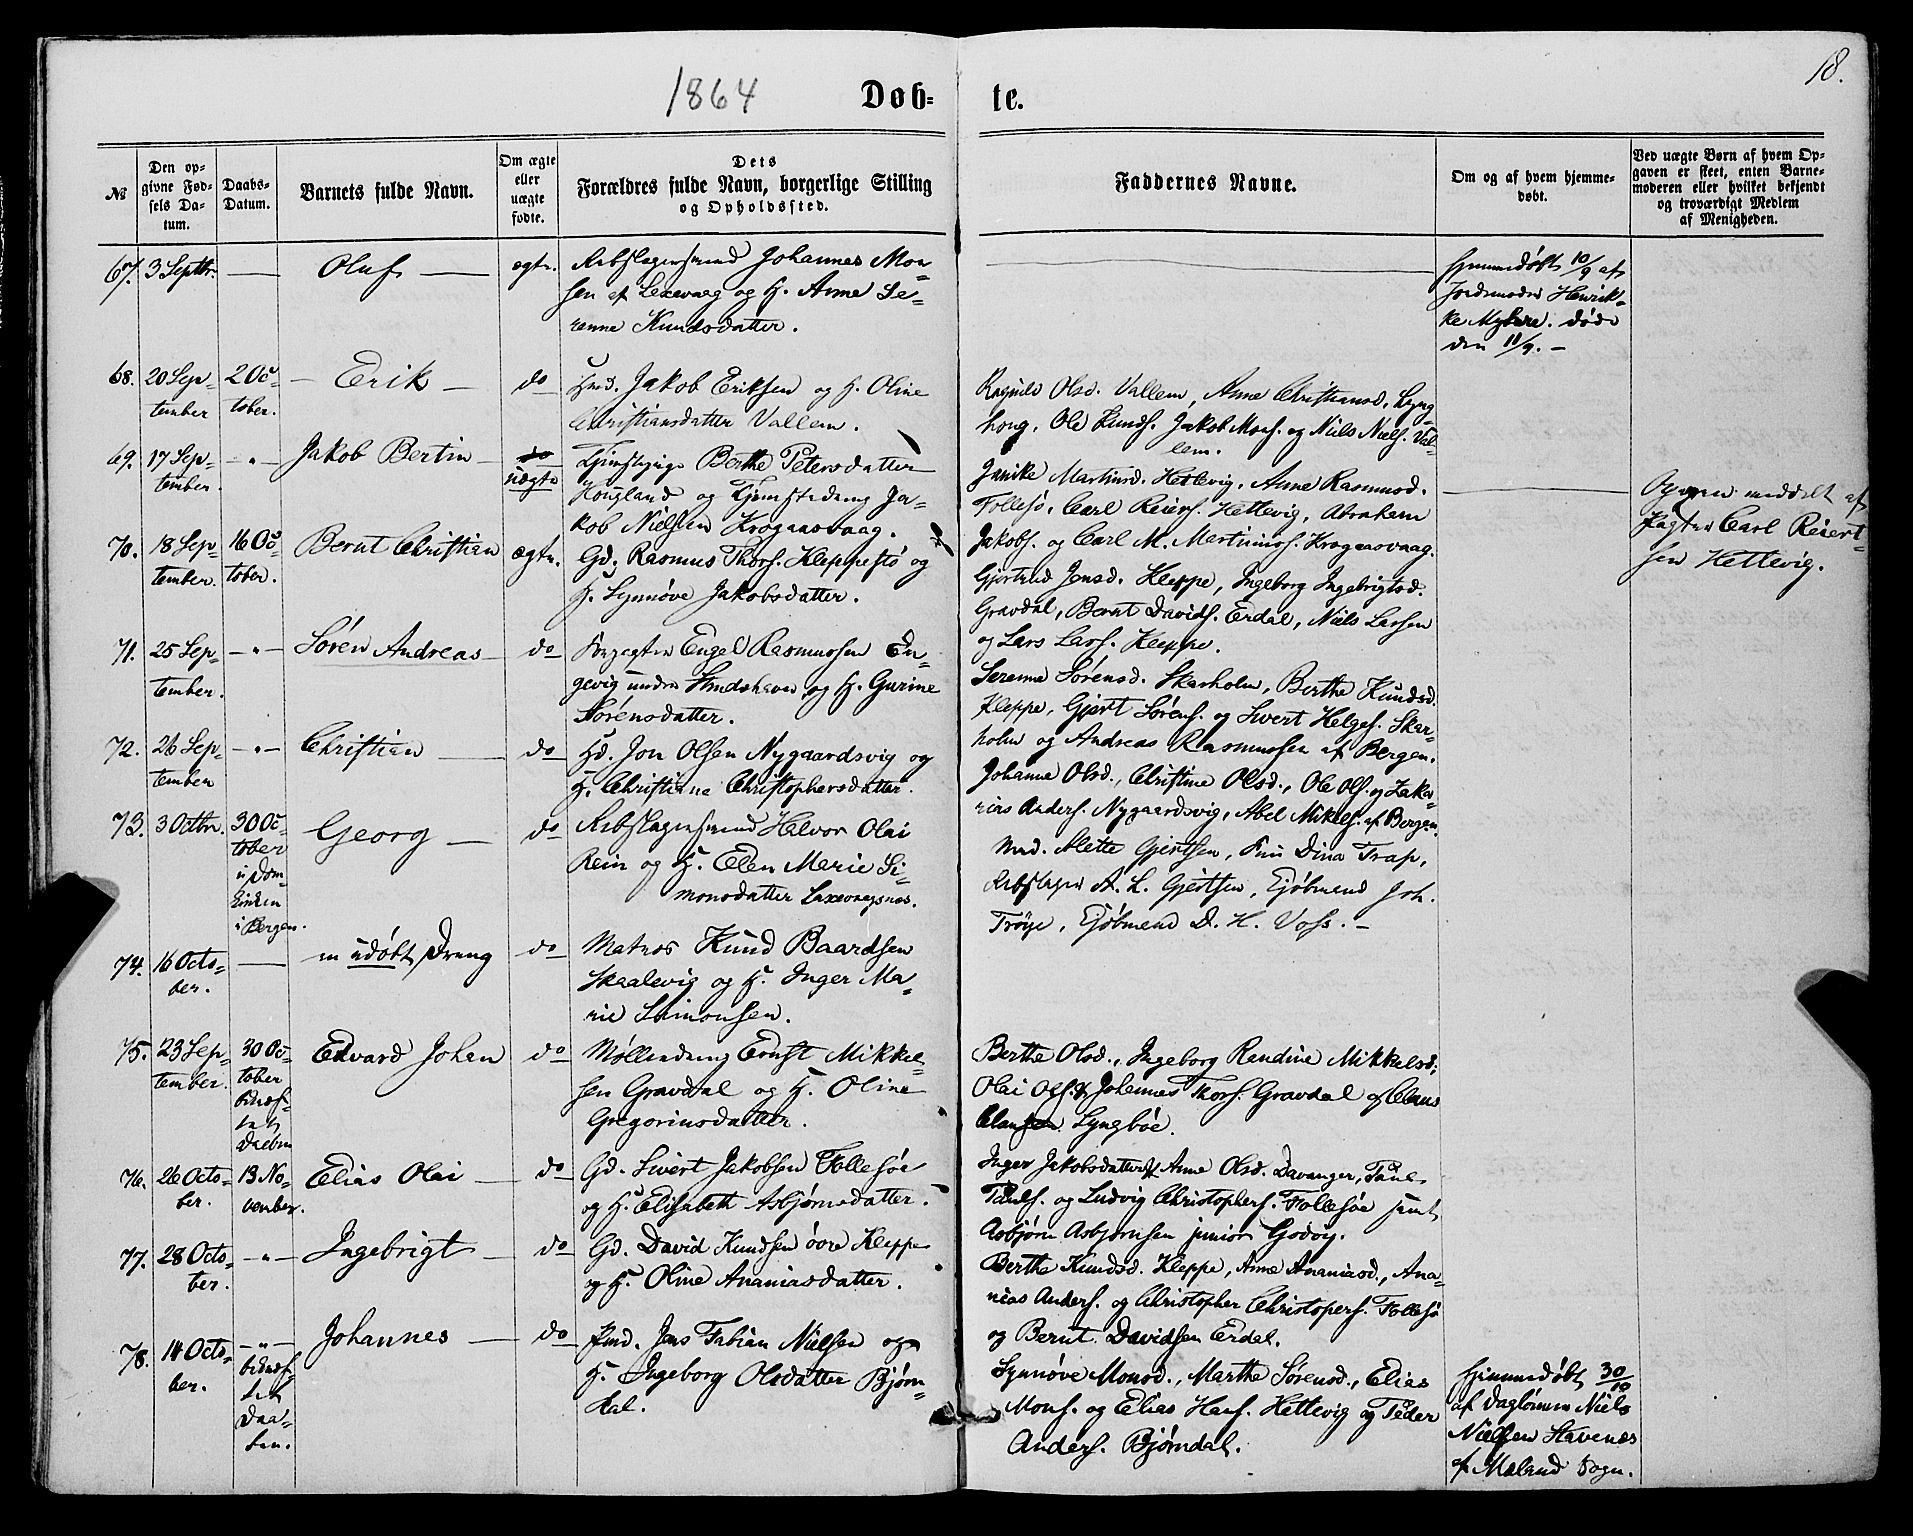 18.
1864
Døb-
te.
№
Den op-
givne Fød-
sels Da-
tum.
Daabs-
Datum.
Barnets fulde Navn.
Om ægte
eller
uægte
fødte.
Dets
Forældres fulde Navn, borgerlige Stilling
og Opholdssted.
Faddernes Navne.
Om og af hvem hjemme-
døbt.
Ved uægte Børn af hvem Op-
gaven er skeet, enten Barne-
moderen eller hvilket bekjendt
og troværdigt Medlem
af Menigheden.
67. 3 Septbr. — Oluf — ægte.
Rebslagersvend Johannes Mon-
sen af Laxevaag og H. Anne Se-
renne Knudsdatter.
Hjemmedøbt 10/9 af
Jordemoder Henrik-
ke Myhre. døde
den 11/9. —
68. 20 Sep-
tember
2 Oc-
tober.
— Erik —
do
Hmd. Jakob Eriksen og H. Oline
Christiansdatter Vallem.
Ragnild Olsd. Vallem, Anne Christiansd. Lyng-
houg, Ole Knuds. Jakob Mons. og Niels Niels. Val-
lem.
69. 17 Sep-
tember.
— " —
Jakob Bertin —
do
uægte
Berthe Petersdatter
Hougland og Tjenestedreng Ja-
kob Nielsen Krogaasvaag.
Janike Martinsd. Hettevig. Anne Rasmusd.
Follesø, Carl Reiers. Hettevig, Abraham
Jakobs. og Carl M. Martinus. Krogaasvaag.
Opgaven meddelt af
Carl Reiert-
sen Hettevig.
70. 18 Sep-
tember.
16 Oc-
tober.
Bernt Christian ægte.
Gd. Rasmus Thors. Kleppestø og
H. Synnøve Jakobsdatter.
Gjertrud Jensd. Kleppe, Ingeborg Ingebrigtsd.
Gravdal, Bernt Davids. Erdal, Niels Larsen
og Lars Lars. Kleppe.
71. 25 Sep-
tember.
— " —
Søren Andreas —
do
Engel Rasmussen En-
gevig under Strudshavn og H. Gurine
Sørensdatter.
Serenne Sørensd. Skarholm, Berthe Knudsd.
Kleppe, Gjert Sørens. og Sivert Helges. Skar-
holm og Andreas Rasmussen af Bergen.
72. 26 Sep-
tember
— " —
Christian —
do
Hd. Jon Olsen Nygaardsvig og
H. Christiane Christophersdatter.
Johanne Olsd., Christine Olsd., Ole Ols. og Zaka-
rias Anders. Nygaardsvig, Abel Mikels. af Bergen.
73. 3 Octbr.
30 Oc-
tober
i Dom-
kirken
i Bergen.
Georg —
do
Rebslagersvend Halvor Olai
Rein og H. Elen Marie Si-
monsdatter Laxevaagsnes.
Mad. Alette Gjertsen, Fru Dina Trap,
Rebslager A. L. Gjertsen, Kjøbmend Joh.
Trøye, Kjøbmend D. H. Voss. —
74. 16 Octo-
ber.
—
en udøbt Dreng
do
Matros Knud Baardsen
Skaalevig og H. Inger Ma-
rie Simonsen.
75. 23 Sep-
tember.
30 Oc-
tober
bekræf-
tet
Daaben
Edvard Johan
do
Møllerdreng Ernst Mikkel-
sen Gravdal og H. Oline
Gregoriusdatter.
Berthe Olsd., Ingeborg Randine Mikkelsd.,
Olai Ols. & Johannes Thors. Gravdal og Claus
Clausen Lyngbøe.
76. 26 Octo-
ber.
13 No-
vember.
Elias Olai —
do
Gd. Sivert Jakobsen Follesøe
og H. Elisabeth Asbjørnsdatter.
Inger Jakobsdatter & Anne Olsd. Davanger, Paul
Pauls. og Ludvig Christophers. Follesøe samt
Asbjørn Asbjørnsen junior Godvig.
77. 28 Octo-
ber.
— " —
Ingebrigt —
do
Gd. David Knudsen øvre Kleppe
og H. Oline Ananiasdatter.
Berthe Knudsd. Kleppe, Anne Ananiasd., Ana-
nias Anders. og Christopher Christophers. Follesø
og Bernt Davidsen Erdal.
78. 14 Octo-
ber.
— " —
bekræf-
tet
Daa-
ben.
Johannes —
do
Hmd. Jens Fabian Nielsen og
H. Ingeborg Olsdatter Bjørn-
dal.
Synnøve Monsd., Marthe Sørensd., Elias
Mons. og Elias Hans. Hettevig og Peder
Anders. Bjørndal.
Hjemmedøbt 30/10
af Daglønner Niels
Nielsen Stavenes
af Meland Sogn.